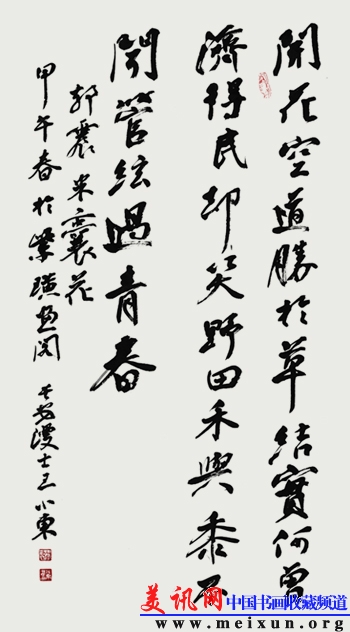 開花空道勝於草結實何曾
濟得民却笑野田禾與黍不
聞管絃過青春
郭震米囊花
甲午春於紫閣漫士王小東
美讯网 中国书画收藏频道
www.meixun.org